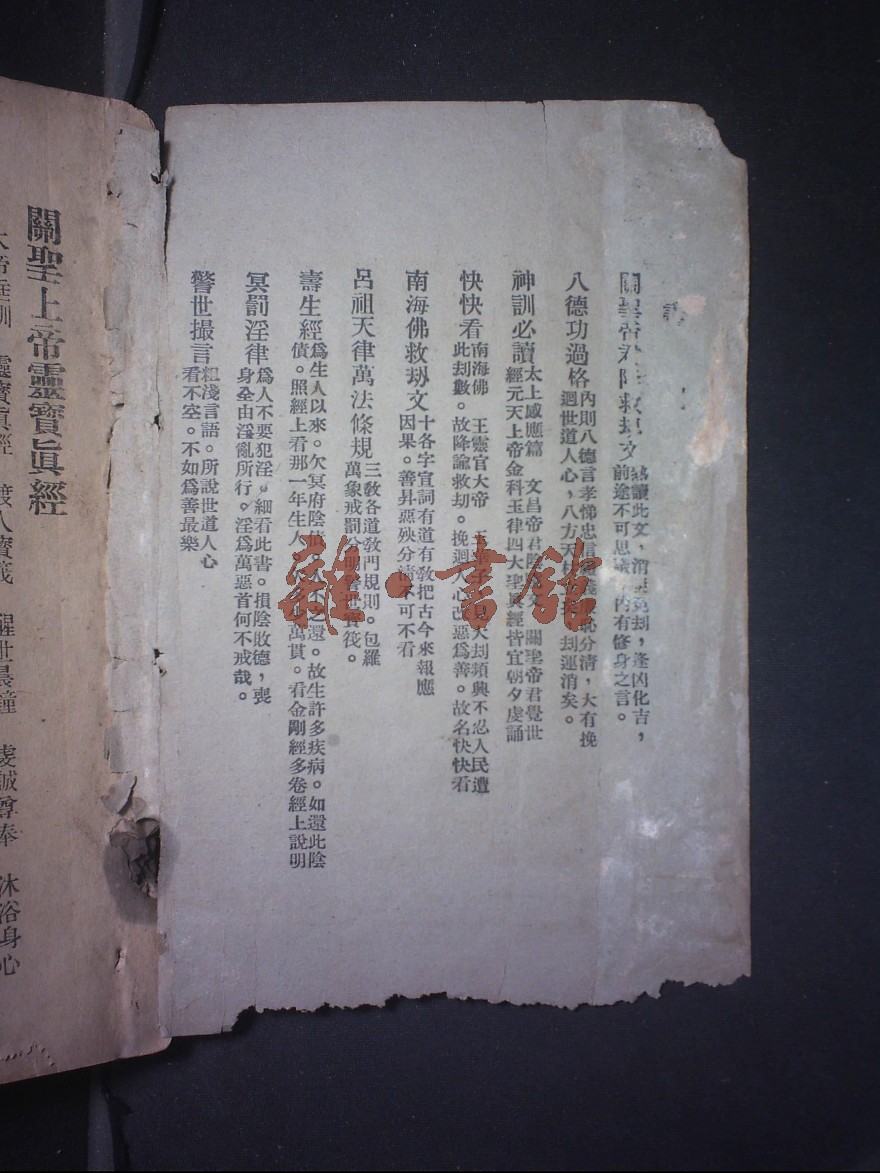 關聖帝君降救劫文
熟讀此文，消㷟免刦，逢凶化吉，
前途不可思議 內有修身之言。
八德功過格
內則八德言孝悌忠信 恥分清，大有挽
迴世道人心，八方天 刦運消矣。
神訓必讀
太上感應篇 文昌帝君陰 文 關聖帝君覺世
經元天上帝金科玉律四大聖眞經皆宜朝夕虔誦
快快看
南海佛 王靈官大帝 大刦頻興不忍人民遭
此刦數。故降諭救刦。挽迴人心改惡爲善。故名快快看
南海佛救刼文
十各字宣詞有道有敎把古今來報應
因果。善昇惡殃分淸不可不看
呂祖天律萬法條規
三敎各道敎門規則。包羅
萬象戒罰分明 世寶筏。
壽生經
爲生人以來。欠冥府陰債。人不之還。故生許多疾病。如還此陰
債。照經上看那一年生人。欠多少萬貫。看金剛經多卷經上說明
冥罰淫律
爲人不要犯淫。細看此書。損陰敗德，喪
身全由淫亂所行。淫爲萬惡首何不戒哉。
警世撮言
粗淺言語。所說世道人心
看不空。不如爲善最樂
雜·書館
關聖上帝靈寶眞經
大帝垂訓 靈寶眞經 渡人寶筏 醒世晨鐘 虔誠尊奉 沐浴身心